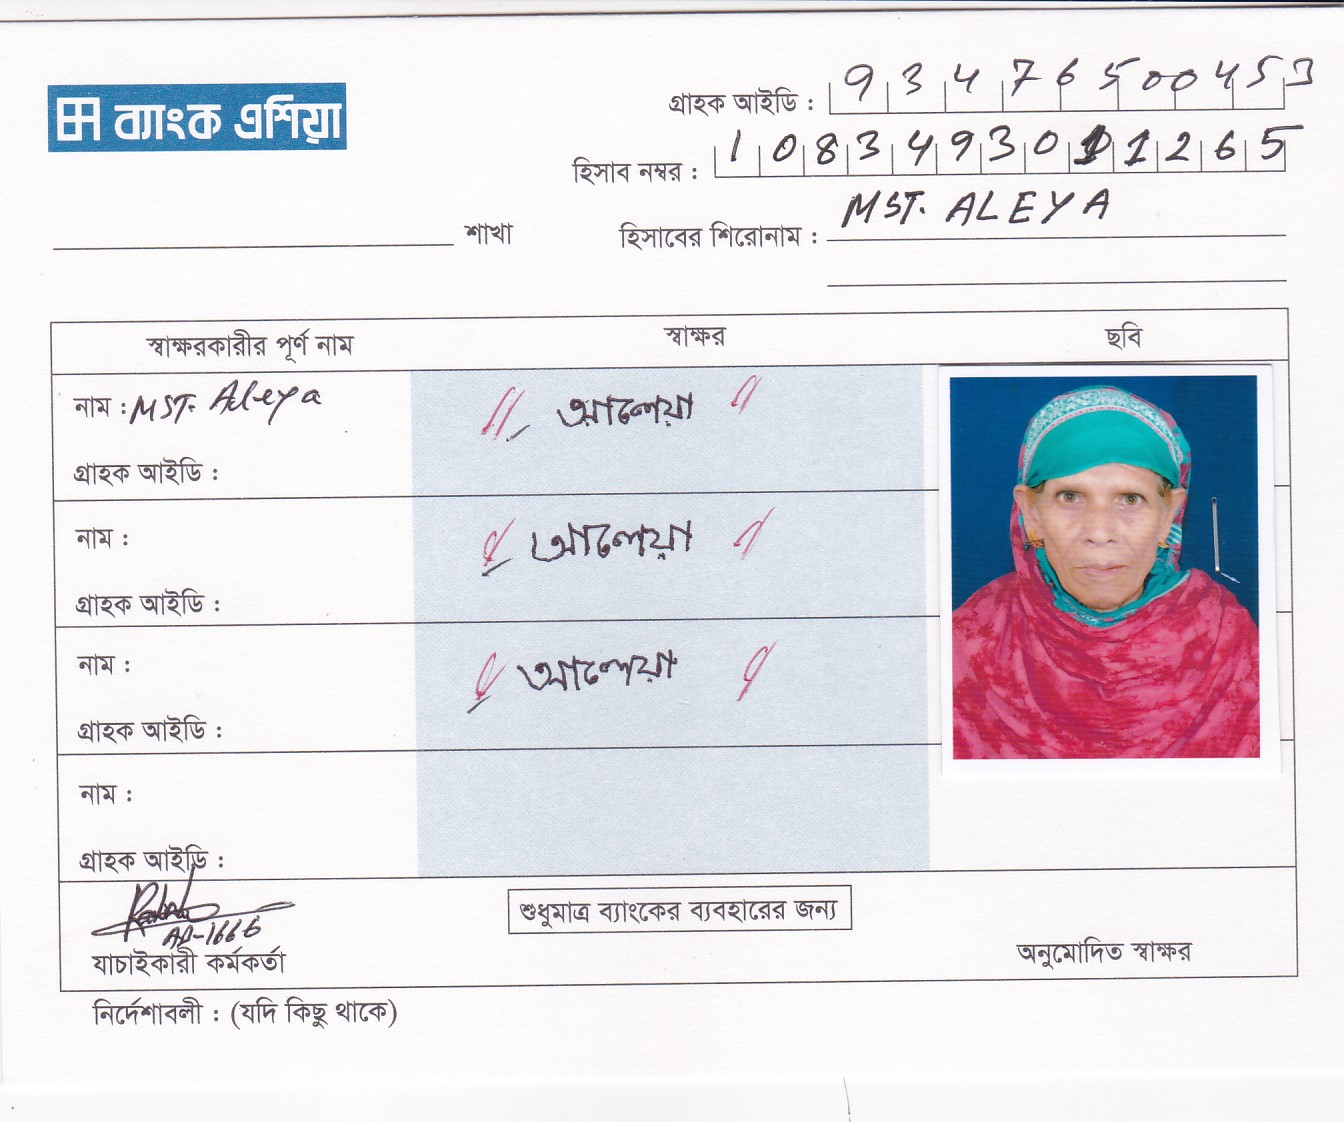 ব্যাংক এশিয়া
গ্রাহক আইডি : 93476500453
হিসাব নম্বর : 1083493011265
শাখা
হিসাবের শিরোনাম : MST. ALEYA
স্বাক্ষরকারীর পূর্ণ নাম স্বাক্ষর ছবি
নাম : MST. Aleya আলেয়া
গ্রাহক আইডি :
নাম : আলেয়া
গ্রাহক আইডি :
নাম : আলেয়া
গ্রাহক আইডি :
নাম :
গ্রাহক আইডি :
AD-1666
শুধুমাত্র ব্যাংকের ব্যবহারের জন্য
যাচাইকারী কর্মকর্তা অনুমোদিত স্বাক্ষর
নির্দেশাবলী : (যদি কিছু থাকে)